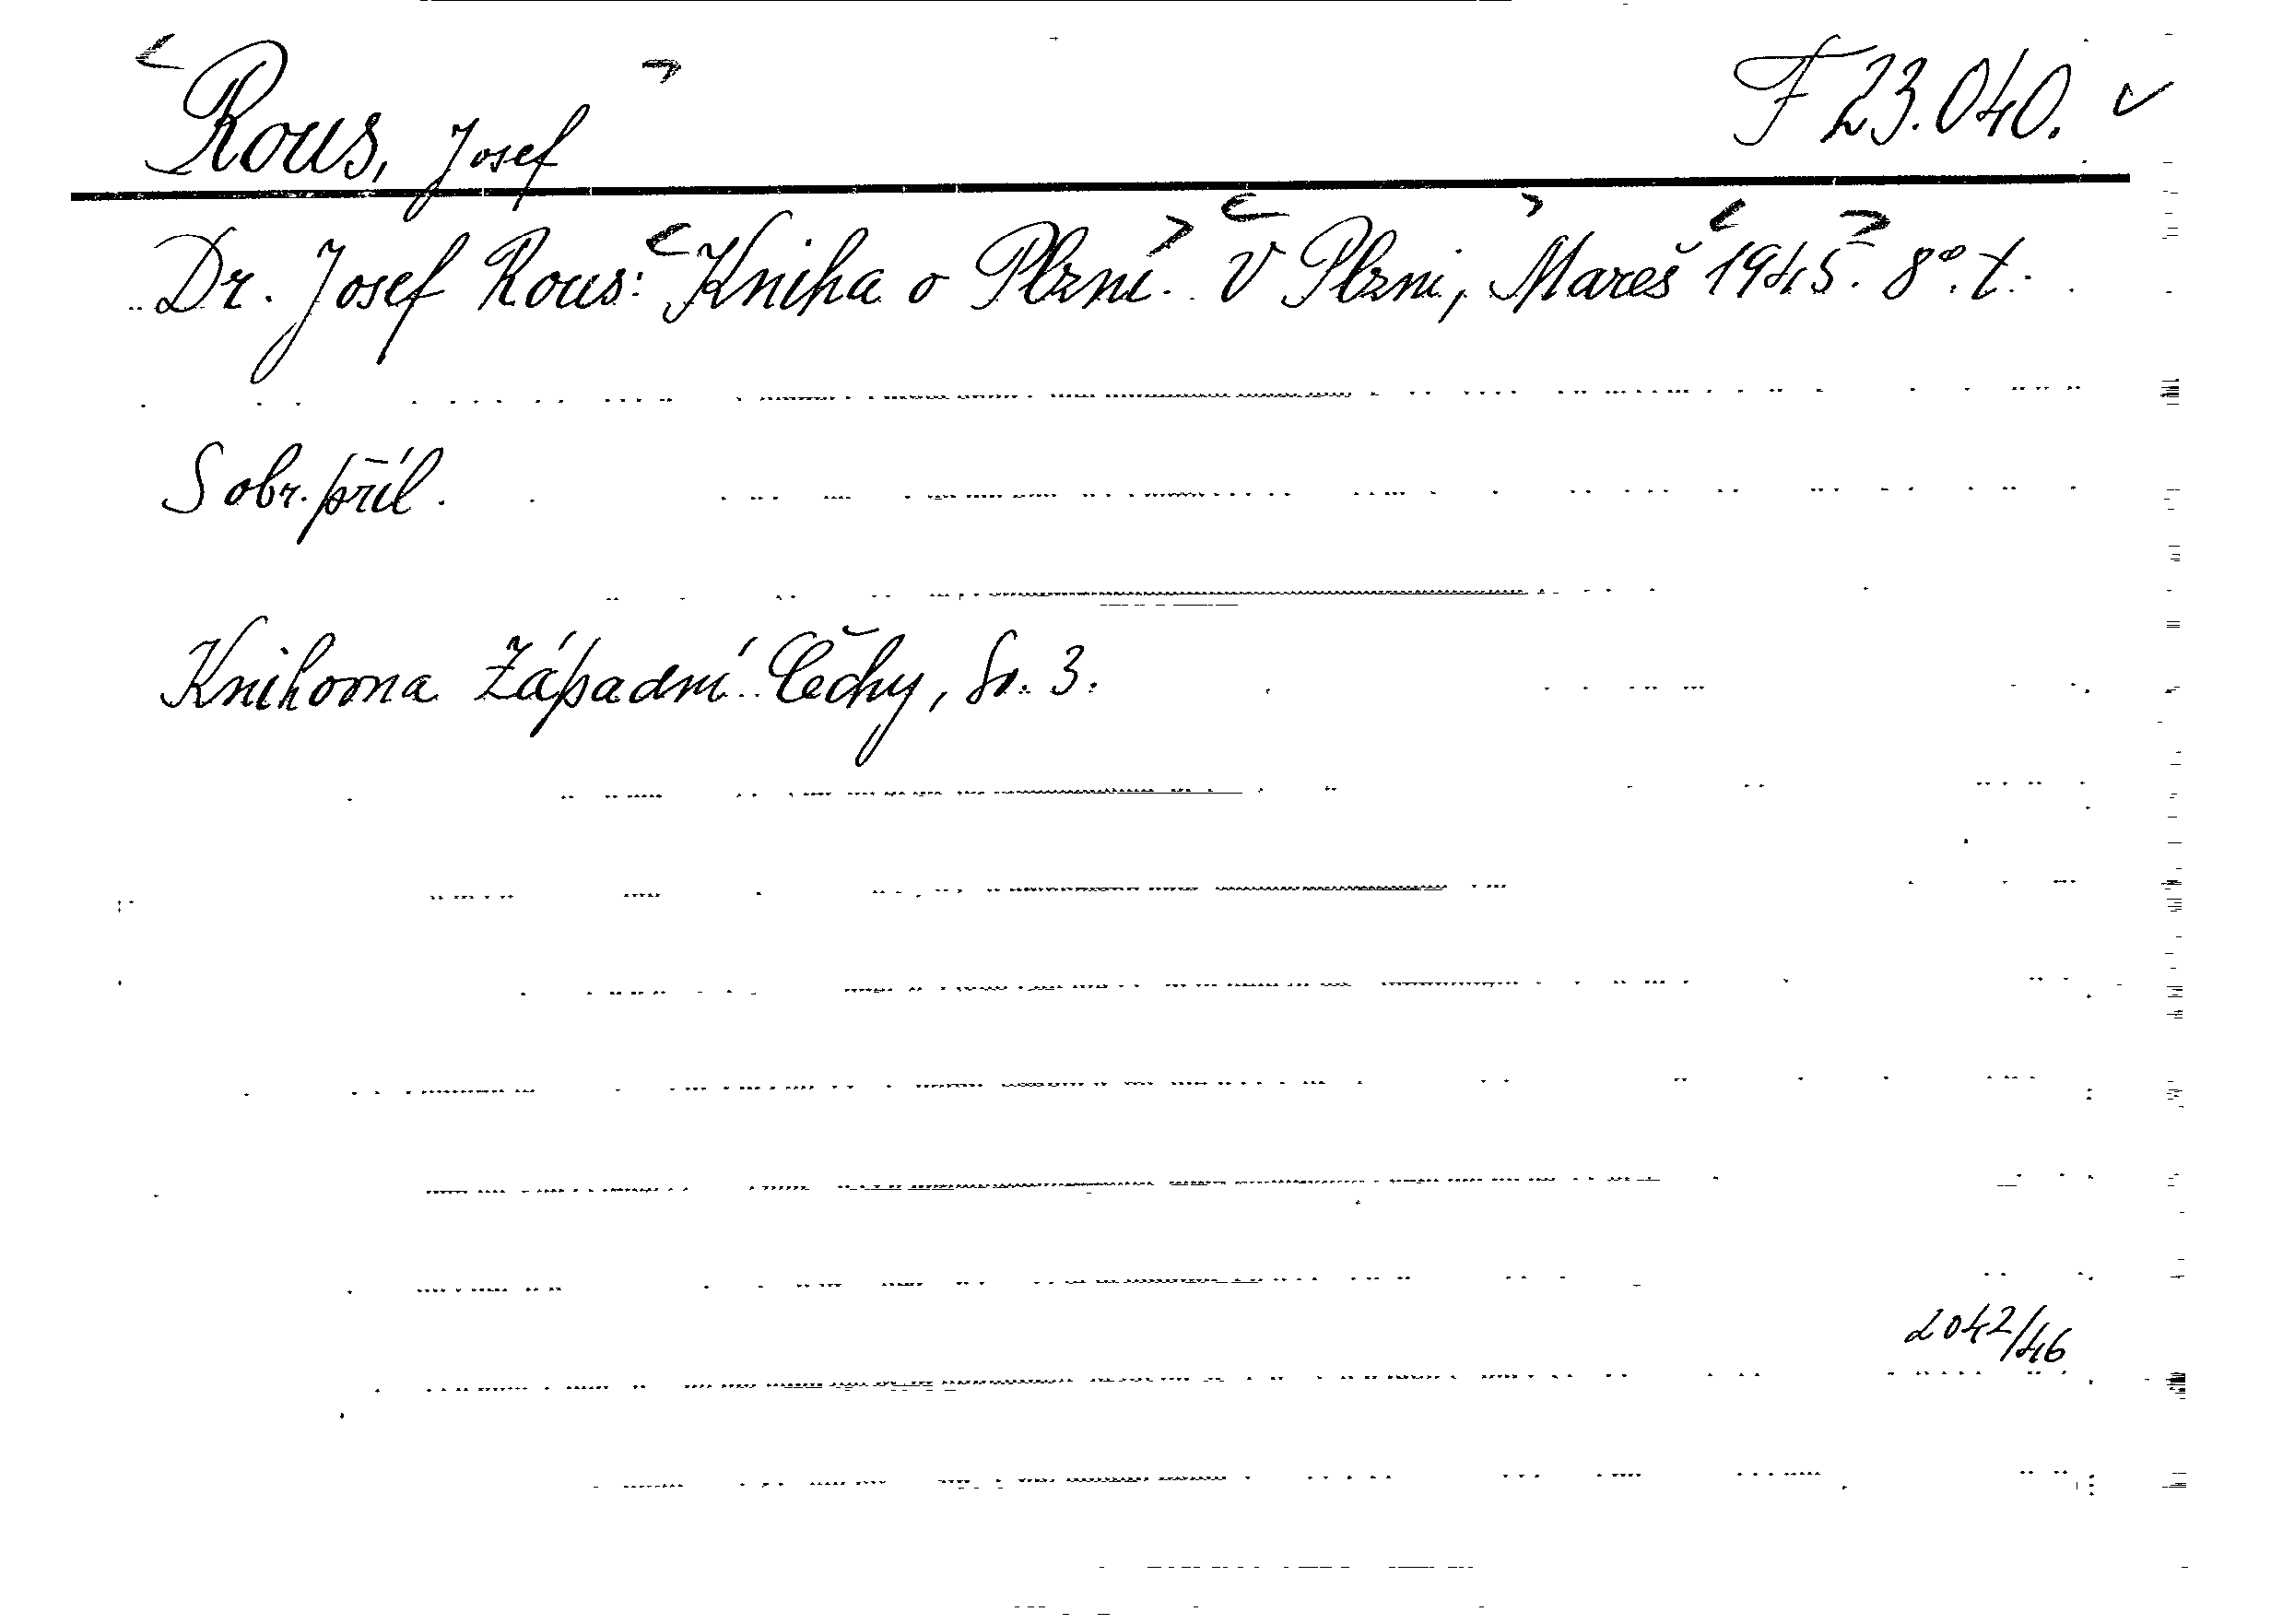 Rous, Josef F 23.040.
Dr. Josef Rous: Kniha o Plzni. V Plzni, Mareš 1945. 8°. t.
S obr. příl.
Knihovna Západní Čechy, Sv. 3.
2042/46